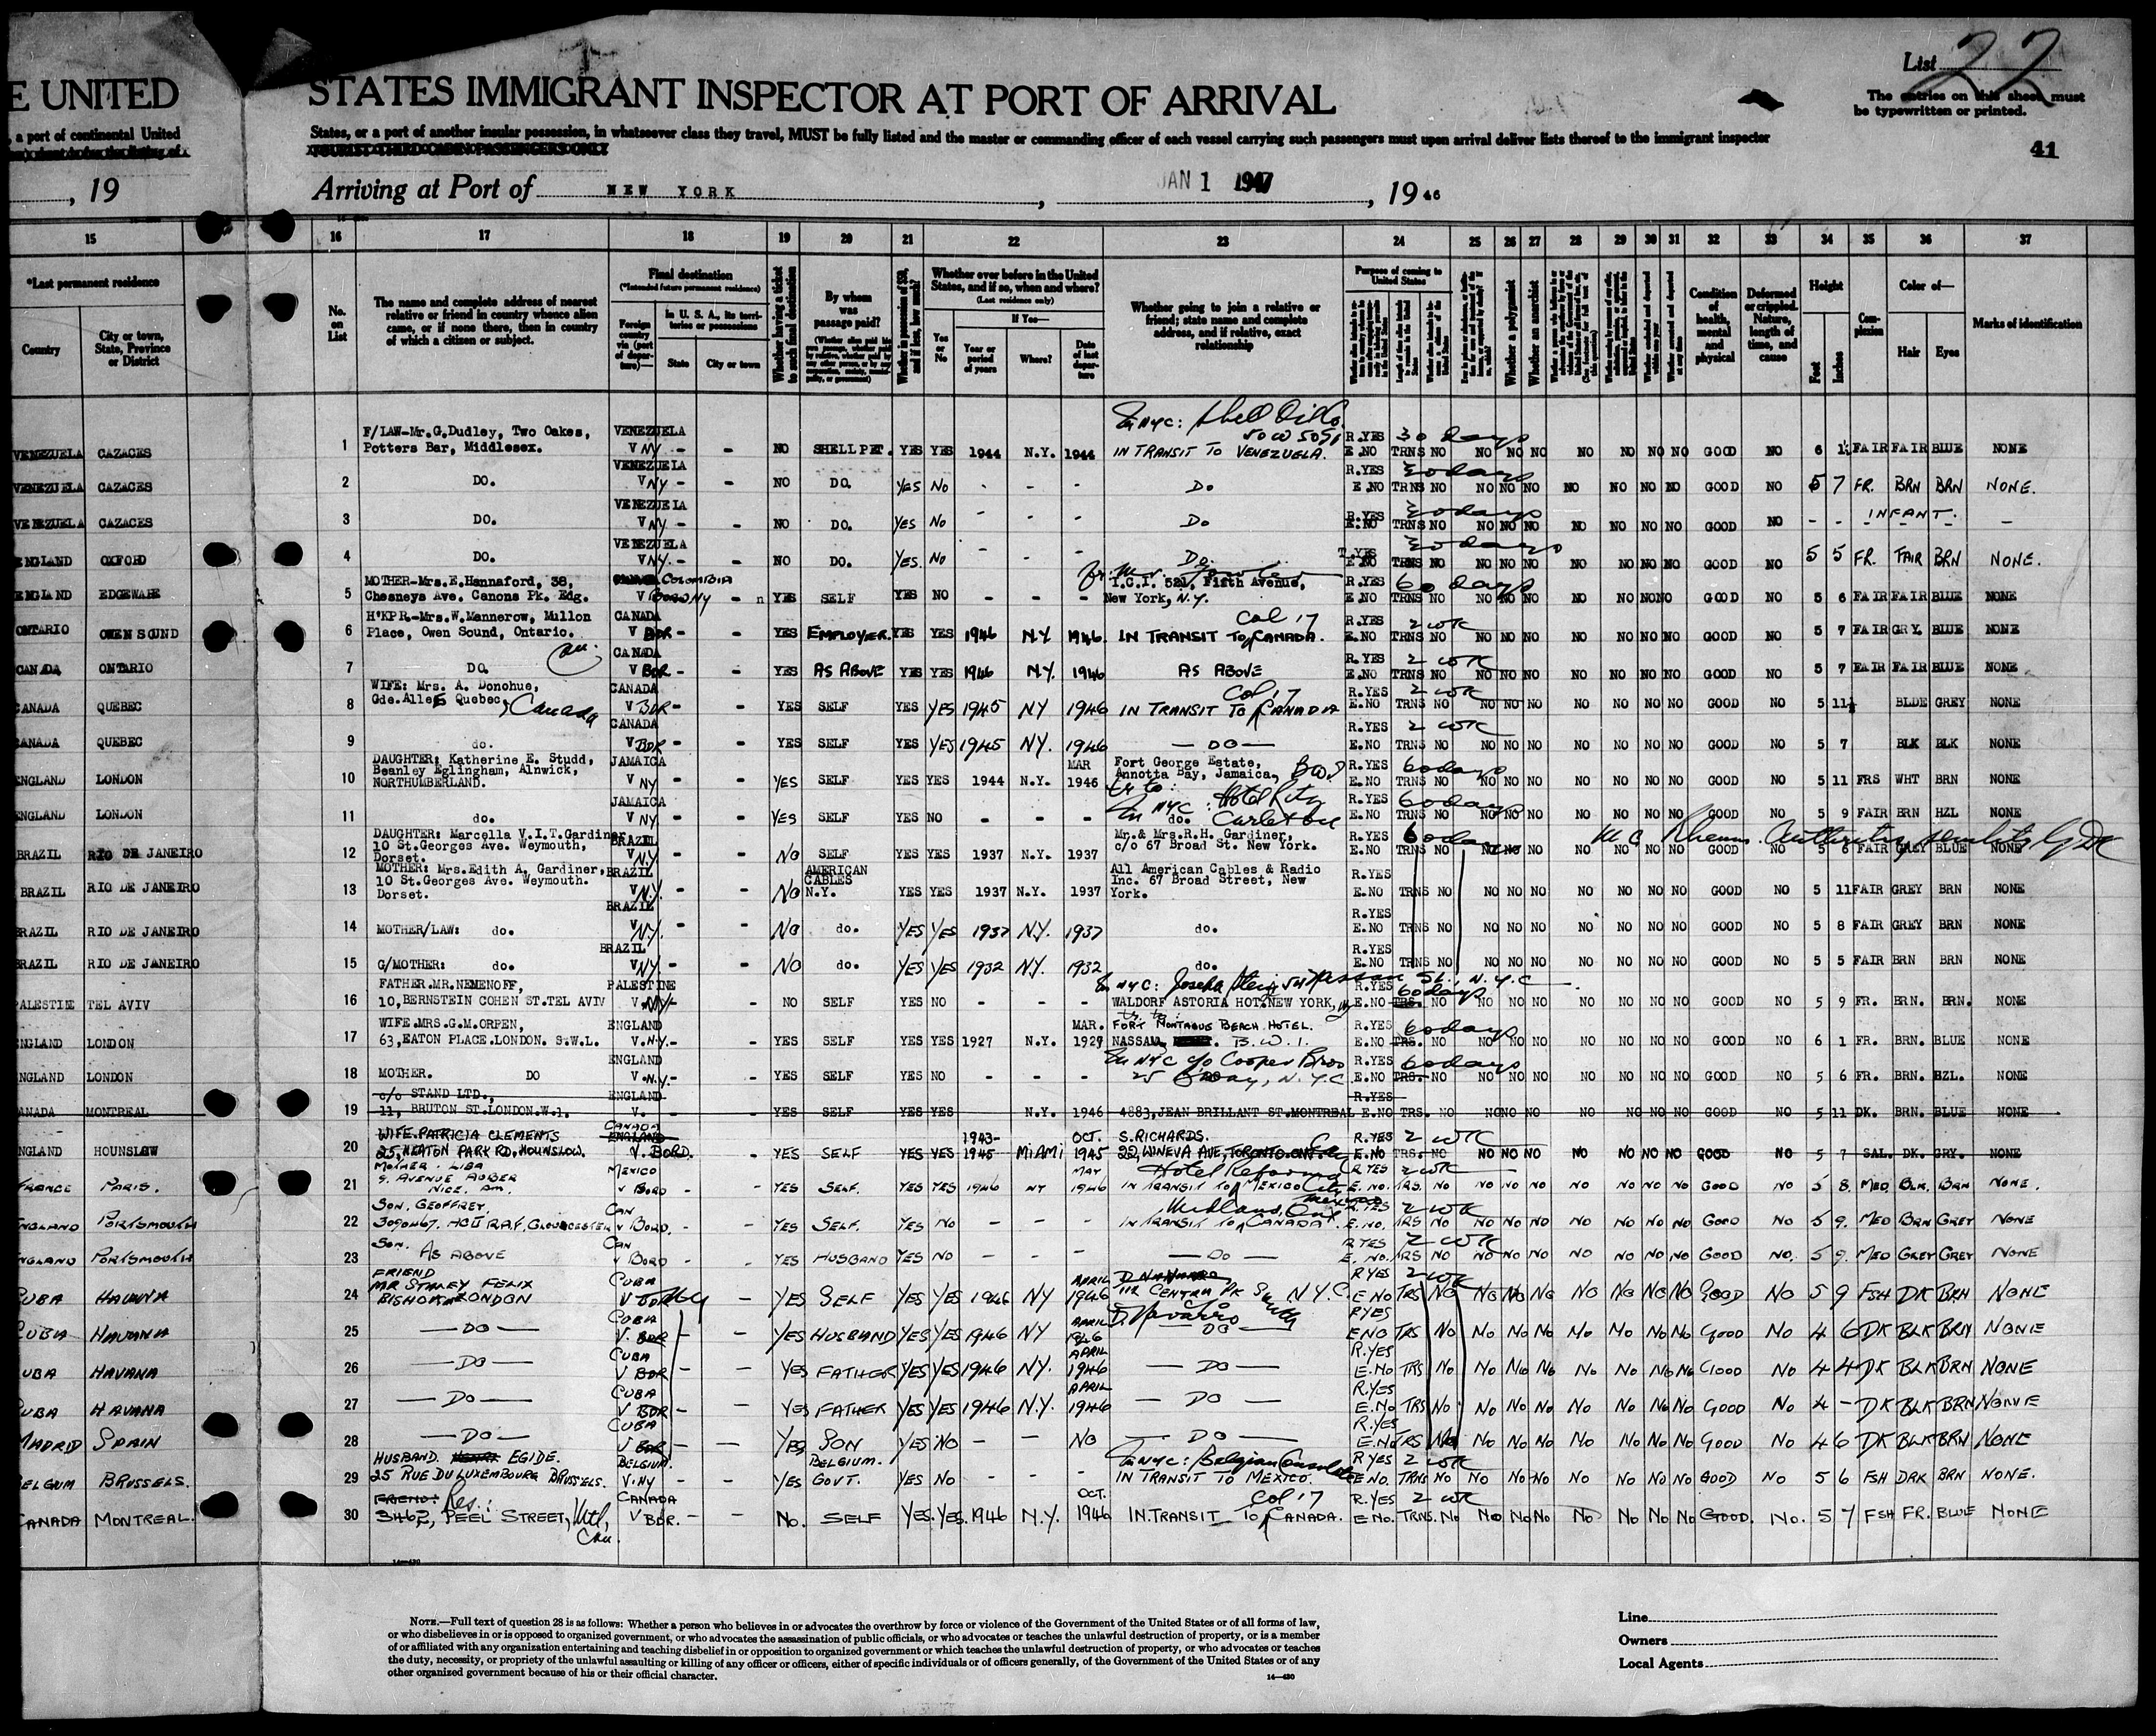 E UNITED
STATES IMMIGRANT INSPECTOR AT PORT OF ARRIVAL
List 22
The entries on this sheet must
be typewritten or printed.
, a port of continental United
States, or a port of another insular possession, in whatsoever class they travel, MUST be fully listed and the master or commanding officer of each vessel carrying such passengers must upon arrival deliver lists thereof to the immigrant inspector
TOURIST THIRD CABIN PASSENGERS ONLY
41
, 19
Arriving at Port of NEW YORK, JAN 1 1947, 1946
15 16 17 18 19 20 21 22 23 24 25 26 27 28 29 30 31 32 33 34 35 36 37
*Last permanent residence
Country
City or town, State, Province or District
No. on List
The name and complete address of nearest relative or friend in country whence alien came, or if none there, then in country of which a citizen or subject.
Final destination
(*Intended future permanent residence)
Foreign country via (port of departure)—
in U. S. A., its territories or possessions
State
City or town
Whether having a ticket to such final destination
By whom was passage paid?
Whether in possession of $50, and if less, how much?
Whether ever before in the United States, and if so, when and where?
(Last residence only)
Yes or No
If Yes—
Year or period of years
Where?
Date of last departure
Whether going to join a relative or friend; state name and complete address, and if relative, exact relationship
Purpose of coming to United States
Whether a polygamist
Whether an anarchist
Condition of health, mental and physical
Deformed or crippled. Nature, length of time, and cause
Height
Feet
Inches
Complexion
Color of—
Hair
Eyes
Marks of identification
In NYC: Shell Oil Co.
50 W 50 St
VENEZUELA CAZACES 1 F/LAW-Mr.G.Dudley, Two Oakes, Potters Bar, Middlesex. VENEZUELA V NY - - NO SHELL PET. YES YES 1944 N.Y. 1944 IN TRANSIT TO VENEZUELA. R.YES E.NO 30 days TRNS NO NO NO NO NO NO NO NO GOOD NO 6 1½ FAIR FAIR BLUE NONE
VENEZUELA CAZACES 2 DO. VENEZUELA V NY - - NO DO. YES NO - - - DO R.YES E.NO 30 days TRNS NO NO NO NO NO NO NO NO GOOD NO 5 7 FR. BRN BRN NONE.
VENEZUELA CAZACES 3 DO. VENEZUELA V NY - - NO DO. YES NO - - - DO R.YES E.NO 30 days TRNS NO NO NO NO NO NO NO NO GOOD NO - - INFANT. -
ENGLAND OXFORD 4 DO. VENEZUELA V NY - - NO DO. YES. NO - - - DO. E.NO 30 days TRNS NO NO NO NO NO NO NO NO GOOD NO 5 5 FR. FAIR BRN NONE.
ENGLAND EDGEWARE 5 MOTHER-Mrs.E.Hannaford, 38, Chesneys Ave. Canons Pk. Edg. COLOMBIA V NY - YES SELF YES NO - - - I.C.I. 521, Fifth Avenue, New York, N.Y. R.YES E.NO 60 days TRNS NO NO NO NO NO NO NO NO GOOD NO 5 6 FAIR FAIR BLUE NONE
ONTARIO OWEN SOUND 6 H'KPR-Mrs.W.Mannerow, Millon Place, Owen Sound, Ontario. CANADA V BOR - - YES EMPLOYER. YES YES 1946 N.Y 1946. Col 17 IN TRANSIT TO CANADA. R.YES E.NO 2 wk TRNS NO NO NO NO NO NO NO NO GOOD NO 5 7 FAIR GRY. BLUE NONE
CANADA ONTARIO 7 DO. CANADA V BOR - - YES AS ABOVE YES YES 1946 N.Y. 1946 AS ABOVE R.YES E.NO 2 wk TRNS NO NO NO NO NO NO NO NO GOOD NO 5 7 FAIR FAIR BLUE NONE
CANADA QUEBEC 8 WIFE: Mrs. A. Donohue, Gde.Alle Quebec, Canada CANADA V BOR - - YES SELF YES YES 1945 NY 1946 Col 17 IN TRANSIT TO CANADA R.YES E.NO 2 wk TRNS NO NO NO NO NO NO NO NO GOOD NO 5 11½ BLDE GREY NONE
CANADA QUEBEC 9 do. CANADA V BOR - - YES SELF YES YES 1945 NY. 1946 — DO — R.YES E.NO 2 wk TRNS NO NO NO NO NO NO NO NO GOOD NO 5 7 BLK BLK NONE
ENGLAND LONDON 10 DAUGHTER: Katherine E. Studd, Beanley Eglingham, Alnwick, NORTHUMBERLAND. JAMAICA V NY - YES SELF YES YES 1944 N.Y. MAR 1946 Fort George Estate, Annotta Bay, Jamaica, BWI R.YES E.NO 60 days TRNS NO NO NO NO NO NO NO NO GOOD NO 5 11 FRS WHT BRN NONE
ENGLAND LONDON 11 do. JAMAICA V NY - YES SELF YES NO In NYC: Hotel Ritz Carleton do. R.YES E.NO 60 days TRNS NO NO NO NO NO NO NO NO GOOD NO 5 9 FAIR BRN HZL NONE
BRAZIL RIO DE JANEIRO 12 DAUGHTER: Marcella V.I.T.Gardiner, 10 St.Georges Ave. Weymouth, Dorset. BRAZIL V N.Y - - NO SELF YES YES 1937 N.Y. 1937 Mr.& Mrs.R.H. Gardiner, c/o 67 Broad St. New York. R.YES E.NO 60 days TRNS NO NO NO NO NO NO NO NO GOOD NO 5 6 FAIR GREY BLUE NONE
BRAZIL RIO DE JANEIRO 13 MOTHER: Mrs.Edith A. Gardiner, 10 St.Georges Ave. Weymouth. Dorset. BRAZIL V N.Y. - - NO AMERICAN CABLES N.Y. YES YES 1937 N.Y. 1937 All American Cables & Radio Inc. 67 Broad Street, New York. R.YES E.NO TRNS NO NO NO NO NO NO NO NO GOOD NO 5 11 FAIR GREY BRN NONE
BRAZIL RIO DE JANEIRO 14 MOTHER/LAW: do. BRAZIL V NY. - - NO do. YES YES 1937 N.Y. 1937 do. R.YES E.NO TRNS NO NO NO NO NO NO NO NO GOOD NO 5 8 FAIR GREY BRN NONE
BRAZIL RIO DE JANEIRO 15 G/MOTHER: do. BRAZIL V NY. - - NO do. YES YES 1932 NY. 1932 do. R.YES TRNS NO NO NO NO NO NO NO NO GOOD NO 5 5 FAIR BRN BRN NONE
PALESTINE TEL AVIV 16 FATHER.MR.NEMENOFF, 10,BERNSTEIN COHEN ST.TEL AVIV PALESTINE V. NY - - NO SELF YES NO - - - In NYC: Joseph Nassau St., N.Y.C WALDORF ASTORIA HOT.NEW YORK, R.YES E.NO 60 days TRS. NO NO NO NO NO NO NO NO GOOD NO 5 9 FR. BRN. BRN. NONE
ENGLAND LONDON 17 WIFE.MRS.G.M.ORPEN, 63,EATON PLACE.LONDON. S.W.L. ENGLAND V.N.Y.- - YES SELF YES YES 1927 N.Y. MAR. 1927 FORT MONTAGUE BEACH HOTEL. NASSAU, B.W.I. R.YES E.NO 60 days TRS. NO NO NO NO NO NO NO NO GOOD NO 6 1 FR. BRN. BLUE NONE
ENGLAND LONDON 18 MOTHER. DO ENGLAND V.N.Y.- - YES SELF YES NO - - - In NYC c/o Cooper Bros 25 Bway, N.Y.C R.YES E.NO 60 days TRS. NO NO NO NO NO NO NO NO GOOD NO 5 6 FR. BRN. HZL. NONE
CANADA MONTREAL 19 c/o STAND LTD., 11, BRUTON ST.LONDON.W.1. ENGLAND V. - YES SELF YES YES N.Y. 1946 4883,JEAN BRILLANT ST.MONTREAL R.YES E.NO TRS. NO NO NO NO NO NO NO NO GOOD NO 5 11 DK. BRN. BLUE NONE
ENGLAND HOUNSLOW 20 WIFE.PATRICIA CLEMENTS 25,HEATON PARK RD,HOUNSLOW. CANADA ENGLAND V. BORD. - YES SELF YES YES 1943-1945 MIAMI OCT. 1945 S.RICHARDS. 22,WINEVA AVE,TORONTO.ONT. R.YES E.NO 2 wk TRS. NO NO NO NO NO NO NO NO GOOD NO 5 7 SAL. DK. GRY. NONE
FRANCE PARIS. 21 MOTHER. LIBA 9. AVENUE AUBER NICE. AM. MEXICO V BORD - YES SELF. YES YES 1946 NY MAY 1946 Hotel Reforma IN TRANSIT TO MEXICO City Mexico R YES E. NO. 2 wk TRS. NO NO NO NO NO NO NO NO GOOD NO 5 8. MED. BLK. BRN NONE.
ENGLAND PORTSMOUTH 22 SON. GEOFFREY. 3090467. HQ R.A.F. GLOUCESTER CAN V BORD. - - YES SELF. YES NO - - - Midland, Ont IN TRANSIT TO CANADA R.YES E.NO. 2 wk TRS NO NO NO NO NO NO NO NO GOOD NO 5 9. MED BRN GREY NONE
ENGLAND PORTSMOUTH 23 SON. AS ABOVE CAN V BORD - - YES HUSBAND YES NO - - - — DO — R YES E. NO. 2 wk TRS NO NO NO NO NO NO NO NO GOOD NO. 5 9. MED GREY GREY NONE
CUBA HAVANA 24 FRIEND MR STANLEY FELIX LONDON CUBA V BDR NY - YES SELF YES YES 1946 NY APRIL 1946 D NAVARRO 112 CENTRAL PK South N.Y.C. R YES E NO 2 wk TRS NO NO NO NO NO NO NO NO NO GOOD NO 5 9 FSH DK BRN NONE
CUBA HAVANA 25 — DO — CUBA V. BDR - - YES HUSBAND YES YES 1946 NY APRIL 1946 D. Navarro — DO — R YES E NO TRS NO NO NO NO NO NO NO NO GOOD NO 4 6 DK BLK BRN NONE
CUBA HAVANA 26 — DO — CUBA V BDR - - YES FATHER YES YES 1946 NY. APRIL 1946 — DO — R.YES E.NO TRS NO NO NO NO NO NO NO NO GOOD NO 4 4 DK BLK BRN NONE
CUBA HAVANA 27 — DO — CUBA V BDR - - YES FATHER YES YES 1946 N.Y. APRIL 1946 — DO — R.YES E.NO TRS NO NO NO NO NO NO NO NO GOOD NO 4 - DK BLK BRN NONE
MADRID SPAIN 28 — DO — CUBA V BDR - — YES SON YES NO - - NO — DO — R.YES E.NO TRS NO NO NO NO NO NO NO NO GOOD NO 4 6 DK BLK BRN NONE
BELGIUM BRUSSELS. 29 HUSBAND. EGIDE. 25 RUE DU LUXEMBOURG BRUSSELS. BELGIUM. V.NY - - YES BELGIUM. GOVT. YES NO - - - In NYC: Belgian Consulate IN TRANSIT TO MEXICO. R YES E NO. 2 wk TRNS NO NO NO NO NO NO NO NO GOOD NO 5 6 FSH DRK BRN NONE.
CANADA MONTREAL. 30 FRIEND: Res.: 3462, PEEL STREET, Mtl, Can. CANADA V BDR. - - NO. SELF YES. YES. 1946 N.Y. OCT. 1946 Col 17 IN TRANSIT TO CANADA. R.YES E NO. 2 wk TRNS. NO NO NO NO NO NO NO NO GOOD. NO. 5 7 FSH FR. BLUE NONE
14—430
NOTE.—Full text of question 28 is as follows: Whether a person who believes in or advocates the overthrow by force or violence of the Government of the United States or of all forms of law,
or who disbelieves in or is opposed to organized government, or who advocates the assassination of public officials, or who advocates or teaches the unlawful destruction of property, or is a member
of or affiliated with any organization entertaining and teaching disbelief in or opposition to organized government or which teaches the unlawful destruction of property, or who advocates or teaches
the duty, necessity, or propriety of the unlawful assaulting or killing of any officer or officers, either of specific individuals or of officers generally, of the Government of the United States or of any
other organized government because of his or their official character.
14—430
Line
Owners
Local Agents